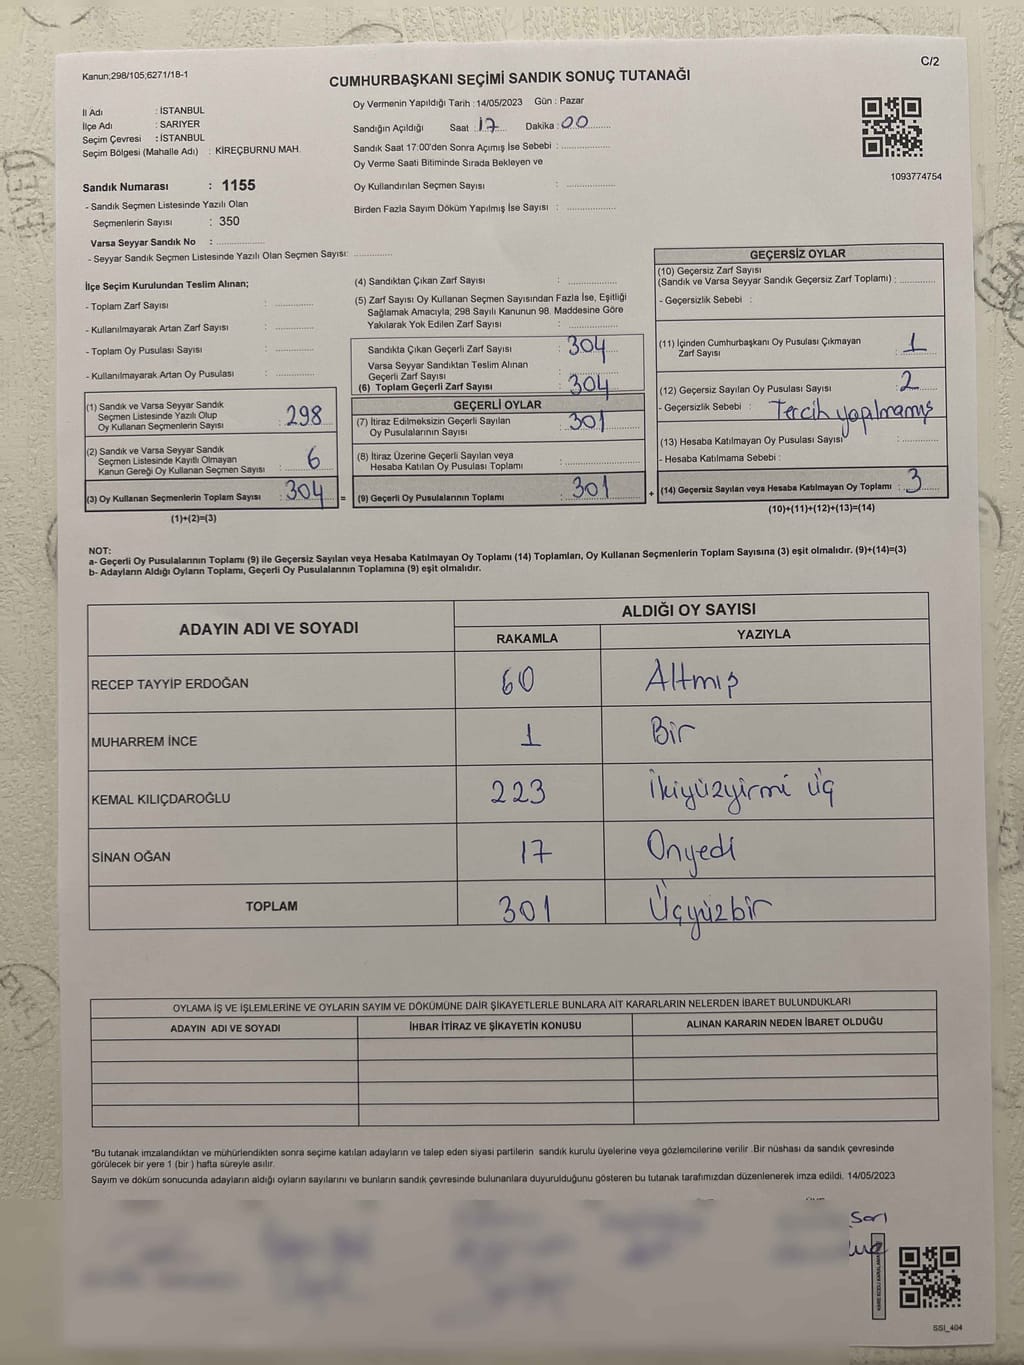 Kanun;298/105;6271/18-1
C/2
CUMHURBAŞKANI SEÇİMİ SANDIK SONUÇ TUTANAĞI
İl Adı : İSTANBUL
İlçe Adı : SARIYER
Seçim Çevresi : İSTANBUL
Seçim Bölgesi (Mahalle Adı) : KİREÇBURNU MAH.
Oy Vermenin Yapıldığı Tarih : 14/05/2023 Gün : Pazar
Sandığın Açıldığı Saat : 17 Dakika : 00
Sandık Saat 17:00'den Sonra Açımış İse Sebebi :
Oy Verme Saati Bitiminde Sırada Bekleyen ve
Oy Kullandırılan Seçmen Sayısı :
Birden Fazla Sayım Döküm Yapılmış İse Sayısı :
1093774754
Sandık Numarası : 1155
- Sandık Seçmen Listesinde Yazılı Olan
Seçmenlerin Sayısı : 350
Varsa Seyyar Sandık No :
- Seyyar Sandık Seçmen Listesinde Yazılı Olan Seçmen Sayısı:
İlçe Seçim Kurulundan Teslim Alınan;
- Toplam Zarf Sayısı :
- Kullanılmayarak Artan Zarf Sayısı :
- Toplam Oy Pusulası Sayısı :
- Kullanılmayarak Artan Oy Pusulası :
(1) Sandık ve Varsa Seyyar Sandık
Seçmen Listesinde Yazılı Olup
Oy Kullanan Seçmenlerin Sayısı : 298
(2) Sandık ve Varsa Seyyar Sandık
Seçmen Listesinde Kayıtlı Olmayan
Kanun Gereği Oy Kullanan Seçmen Sayısı : 6
(3) Oy Kullanan Seçmenlerin Toplam Sayısı : 304 =
(1)+(2)=(3)
(4) Sandıktan Çıkan Zarf Sayısı :
(5) Zarf Sayısı Oy Kullanan Seçmen Sayısından Fazla İse, Eşitliği
Sağlamak Amacıyla; 298 Sayılı Kanunun 98. Maddesine Göre
Yakılarak Yok Edilen Zarf Sayısı :
Sandıkta Çıkan Geçerli Zarf Sayısı : 304
Varsa Seyyar Sandıktan Teslim Alınan
Geçerli Zarf Sayısı :
(6) Toplam Geçerli Zarf Sayısı : 304
GEÇERLİ OYLAR
(7) İtiraz Edilmeksizin Geçerli Sayılan
Oy Pusulalarının Sayısı : 301
(8) İtiraz Üzerine Geçerli Sayılan veya
Hesaba Katılan Oy Pusulası Toplamı :
(9) Geçerli Oy Pusulalarının Toplamı : 301 +
GEÇERSİZ OYLAR
(10) Geçersiz Zarf Sayısı
(Sandık ve Varsa Seyyar Sandık Geçersiz Zarf Toplamı) :
- Geçersizlik Sebebi :
(11) İçinden Cumhurbaşkanı Oy Pusulası Çıkmayan
Zarf Sayısı : 1
(12) Geçersiz Sayılan Oy Pusulası Sayısı : 2
- Geçersizlik Sebebi : Tercih yapılmamış
(13) Hesaba Katılmayan Oy Pusulası Sayısı :
- Hesaba Katılmama Sebebi :
(14) Geçersiz Sayılan veya Hesaba Katılmayan Oy Toplamı : 3
(10)+(11)+(12)+(13)=(14)
NOT:
a- Geçerli Oy Pusulalarının Toplamı (9) ile Geçersiz Sayılan veya Hesaba Katılmayan Oy Toplamı (14) Toplamları, Oy Kullanan Seçmenlerin Toplam Sayısına (3) eşit olmalıdır. (9)+(14)=(3)
b- Adayların Aldığı Oyların Toplamı, Geçerli Oy Pusulalarının Toplamına (9) eşit olmalıdır.
ADAYIN ADI VE SOYADI
ALDIĞI OY SAYISI
RAKAMLA YAZIYLA
RECEP TAYYİP ERDOĞAN 60 Altmış
MUHARREM İNCE 1 Bir
KEMAL KILIÇDAROĞLU 223 İkiyüzyirmi üç
SİNAN OĞAN 17 Onyedi
TOPLAM 301 Üçyüzbir
OYLAMA İŞ VE İŞLEMLERİNE VE OYLARIN SAYIM VE DÖKÜMÜNE DAİR ŞİKAYETLERLE BUNLARA AİT KARARLARIN NELERDEN İBARET BULUNDUKLARI
ADAYIN ADI VE SOYADI İHBAR İTİRAZ VE ŞİKAYETİN KONUSU ALINAN KARARIN NEDEN İBARET OLDUĞU
*Bu tutanak imzalandıktan ve mühürlendikten sonra seçime katılan adayların ve talep eden siyasi partilerin sandık kurulu üyelerine veya gözlemcilerine verilir .Bir nüshası da sandık çevresinde
görülecek bir yere 1 (bir ) hafta süreyle asılır.
Sayım ve döküm sonucunda adayların aldığı oyların sayılarını ve bunların sandık çevresinde bulunanlara duyurulduğunu gösteren bu tutanak tarafımızdan düzenlenerek imza edildi. 14/05/2023
SSI_404